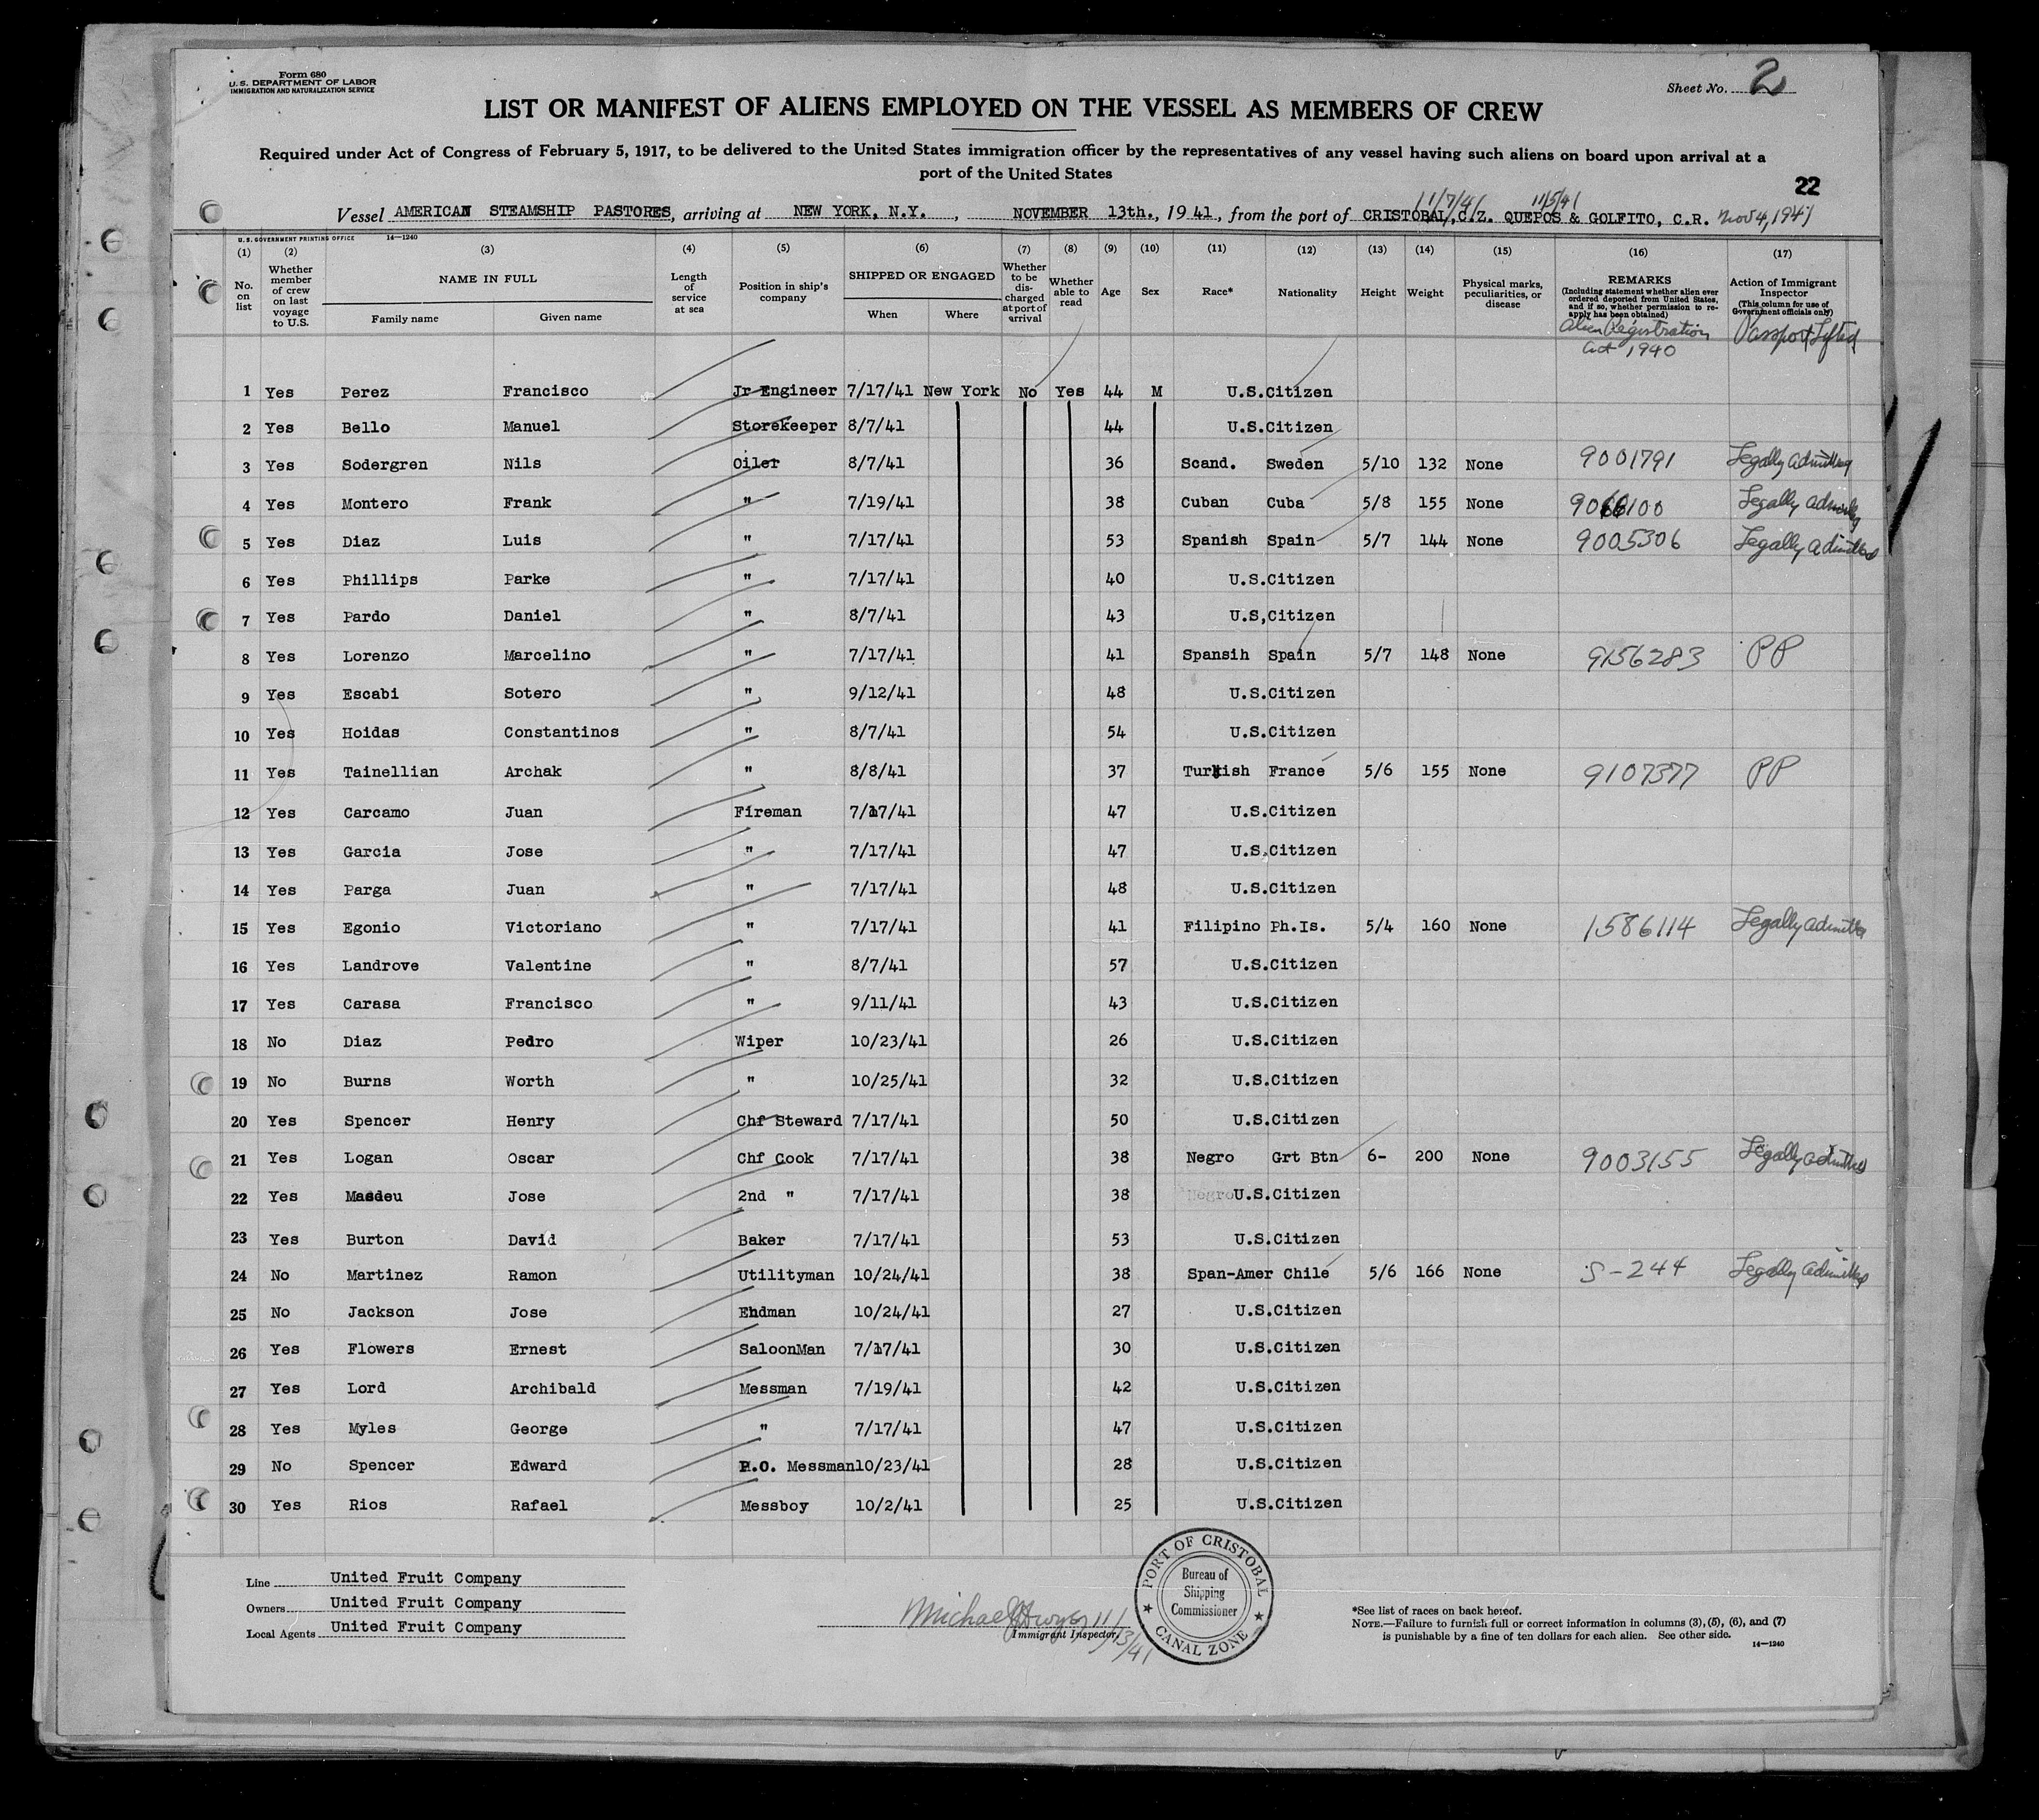 Form 680
U. S. DEPARTMENT OF LABOR
IMMIGRATION AND NATURALIZATION SERVICE
Sheet No. 2
LIST OR MANIFEST OF ALIENS EMPLOYED ON THE VESSEL AS MEMBERS OF CREW
Required under Act of Congress of February 5, 1917, to be delivered to the United States immigration officer by the representatives of any vessel having such aliens on board upon arrival at a
port of the United States
22
11/7/41 11/5/41
Vessel AMERICAN STEAMSHIP PASTORES, arriving at NEW YORK, N.Y., NOVEMBER 13th., 1941, from the port of CRISTOBAL,C.Z. QUEPOS & GOLFITO, C.R. Nov 4, 1941
U. S. GOVERNMENT PRINTING OFFICE 14—1240
(1) (2) (3) (4) (5) (6) (7) (8) (9) (10) (11) (12) (13) (14) (15) (16) (17)
No. on list
Whether member of crew on last voyage to U.S.
NAME IN FULL
Family name
Given name
Length of service at sea
Position in ship's company
SHIPPED OR ENGAGED
When
Where
Whether to be discharged at port of arrival
Whether able to read
Age
Sex
Race*
Nationality
Height
Weight
Physical marks, peculiarities, or disease
REMARKS
(Including statement whether alien ever ordered deported from United States, and if so, whether permission to re-apply has been obtained)
Alien Registration
Act 1940
Action of Immigrant Inspector
(This column for use of Government officials only)
Passport Lifted
1 Yes Perez Francisco Jr Engineer 7/17/41 New York No Yes 44 M U.S.Citizen
2 Yes Bello Manuel Storekeeper 8/7/41 44 U.S.Citizen
3 Yes Sodergren Nils Oiler 8/7/41 36 Scand. Sweden 5/10 132 None 9001791 Legally admitted
4 Yes Montero Frank " 7/19/41 38 Cuban Cuba 5/8 155 None Legally admitted
5 Yes Diaz Luis " 7/17/41 53 Spanish Spain 5/7 144 None 9005306 Legally admitted
6 Yes Phillips Parke " 7/17/41 40 U.S.Citizen
7 Yes Pardo Daniel " 8/7/41 43 U.S,Citizen
8 Yes Lorenzo Marcelino " 7/17/41 41 Spansih Spain 5/7 148 None 9156283 PP
9 Yes Escabi Sotero " 9/12/41 48 U.S.Citizen
10 Yes Hoidas Constantinos " 8/7/41 54 U.S.Citizen
11 Yes Tainellian Archak " 8/8/41 37 Turkish France 5/6 155 None 9107377 PP
12 Yes Carcamo Juan Fireman 7/17/41 47 U.S.Citizen
13 Yes Garcia Jose " 7/17/41 47 U.S.Citizen
14 Yes Parga Juan " 7/17/41 48 U.S.Citizen
15 Yes Egonio Victoriano " 7/17/41 41 Filipino Ph.Is. 5/4 160 None 1586114 Legally admitted
16 Yes Landrove Valentine " 8/7/41 57 U.S.Citizen
17 Yes Carasa Francisco " 9/11/41 43 U.S.Citizen
18 No Diaz Pedro Wiper 10/23/41 26 U.S.Citizen
19 No Burns Worth " 10/25/41 32 U.S.Citizen
20 Yes Spencer Henry Chf Steward 7/17/41 50 U.S.Citizen
21 Yes Logan Oscar Chf Cook 7/17/41 38 Negro Grt Btn 6- 200 None 9003155 Legally admitted
22 Yes Masdeu Jose 2nd " 7/17/41 38 Negro U.S.Citizen
23 Yes Burton David Baker 7/17/41 53 U.S.Citizen
24 No Martinez Ramon Utilityman 10/24/41 38 Span-Amer Chile 5/6 166 None S-244 Legally admitted
25 No Jackson Jose Endman 10/24/41 27 U.S.Citizen
26 Yes Flowers Ernest SaloonMan 7/17/41 30 U.S.Citizen
27 Yes Lord Archibald Messman 7/19/41 42 U.S.Citizen
28 Yes Myles George " 7/17/41 47 U.S.Citizen
29 No Spencer Edward P.O. Messman 10/23/41 28 U.S.Citizen
30 Yes Rios Rafael Messboy 10/2/41 25 U.S.Citizen
Line United Fruit Company
Owners United Fruit Company
Local Agents United Fruit Company
Michael 11/13/41
Immigrant Inspector
PORT OF CRISTOBAL
Bureau of
Shipping
Commissioner
CANAL ZONE
*See list of races on back hereof.
NOTE.—Failure to furnish full or correct information in columns (3), (5), (6), and (7)
is punishable by a fine of ten dollars for each alien. See other side.
14—1240